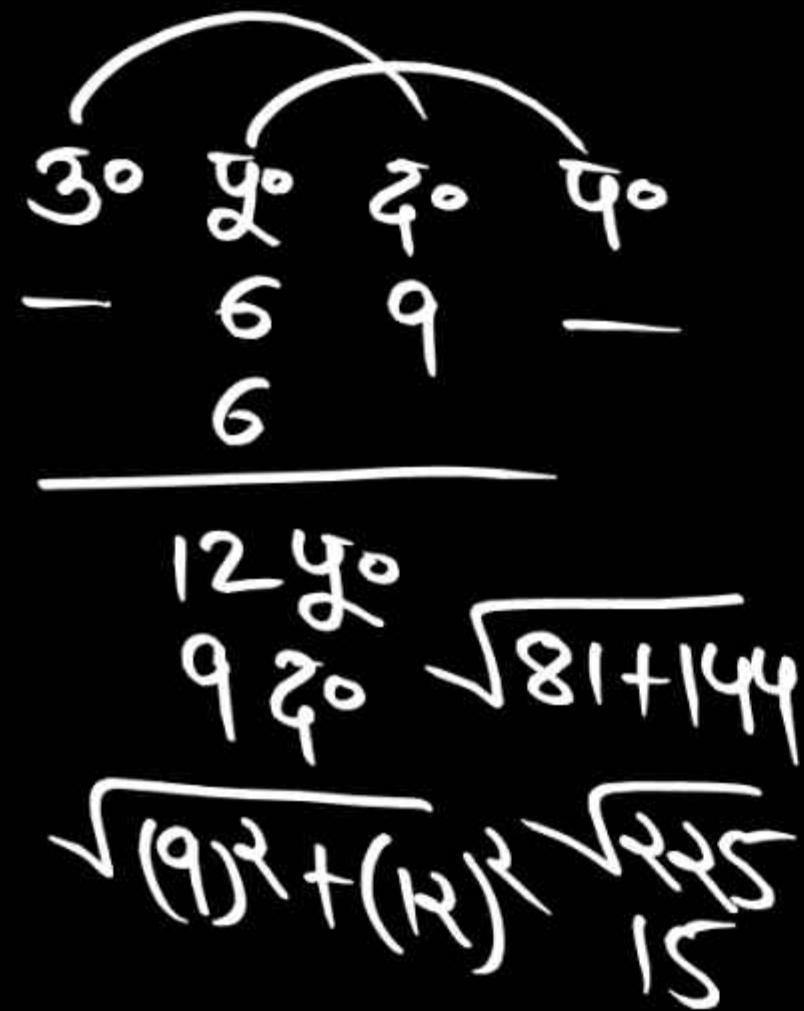 उ० पू० द० प०
— 6 9 —
6
12 पू०
9 द० √81+144
√(9)²+(12)² √225
15